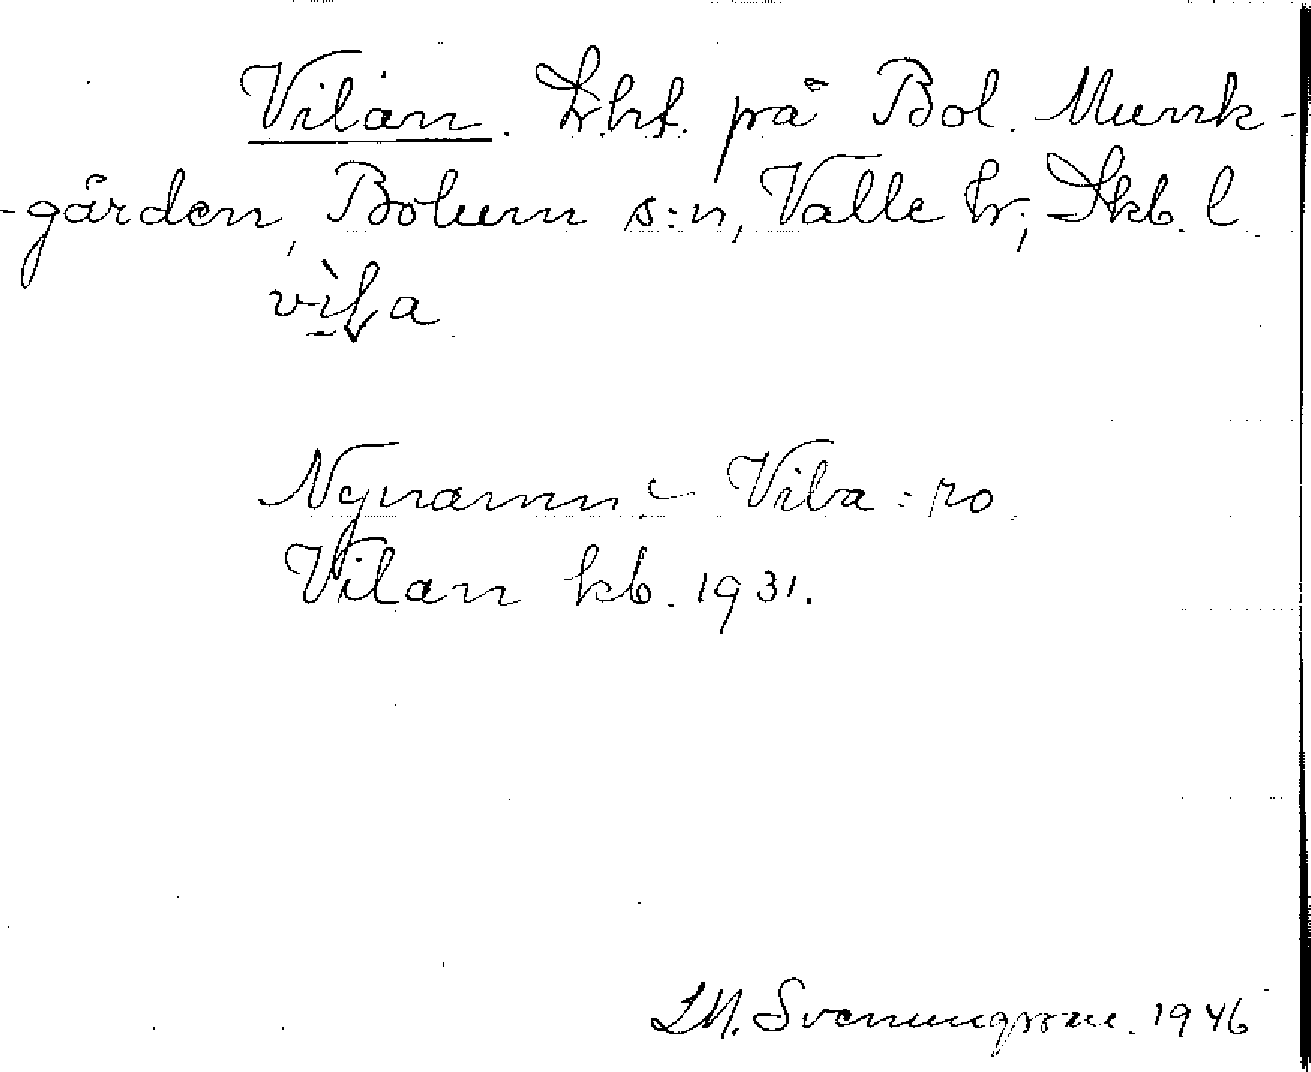 Vilan. Lht. på Bol. Munk-
-gården, Bolum s:n, Valle hr; Skb. l.
vìla
Nynamn :- Vila = ro
Vilan kb. 1931.
L.M. Svenungsson. 1946